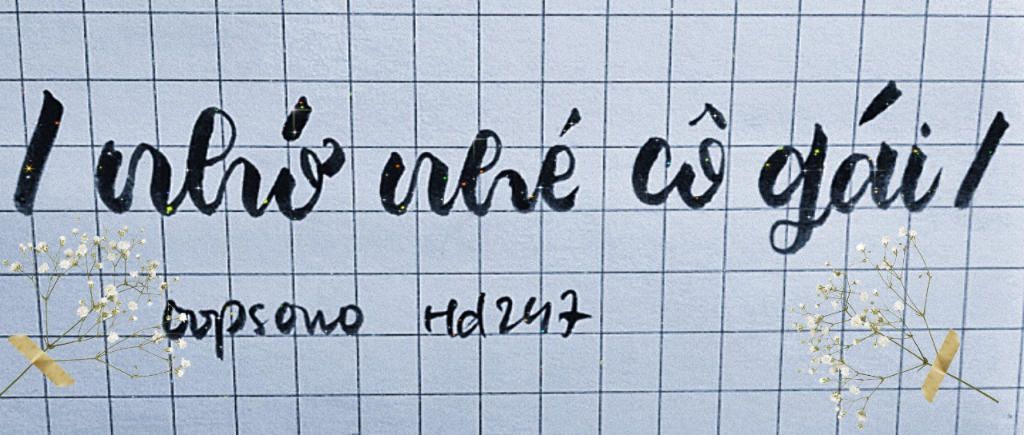 / nhớ nhé cô gái /
oopsono Hd247